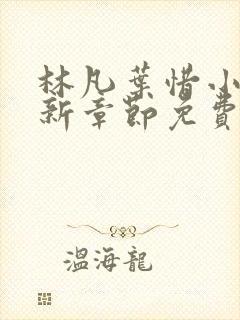 林凡葉惜小
新章節免費
溫海龍